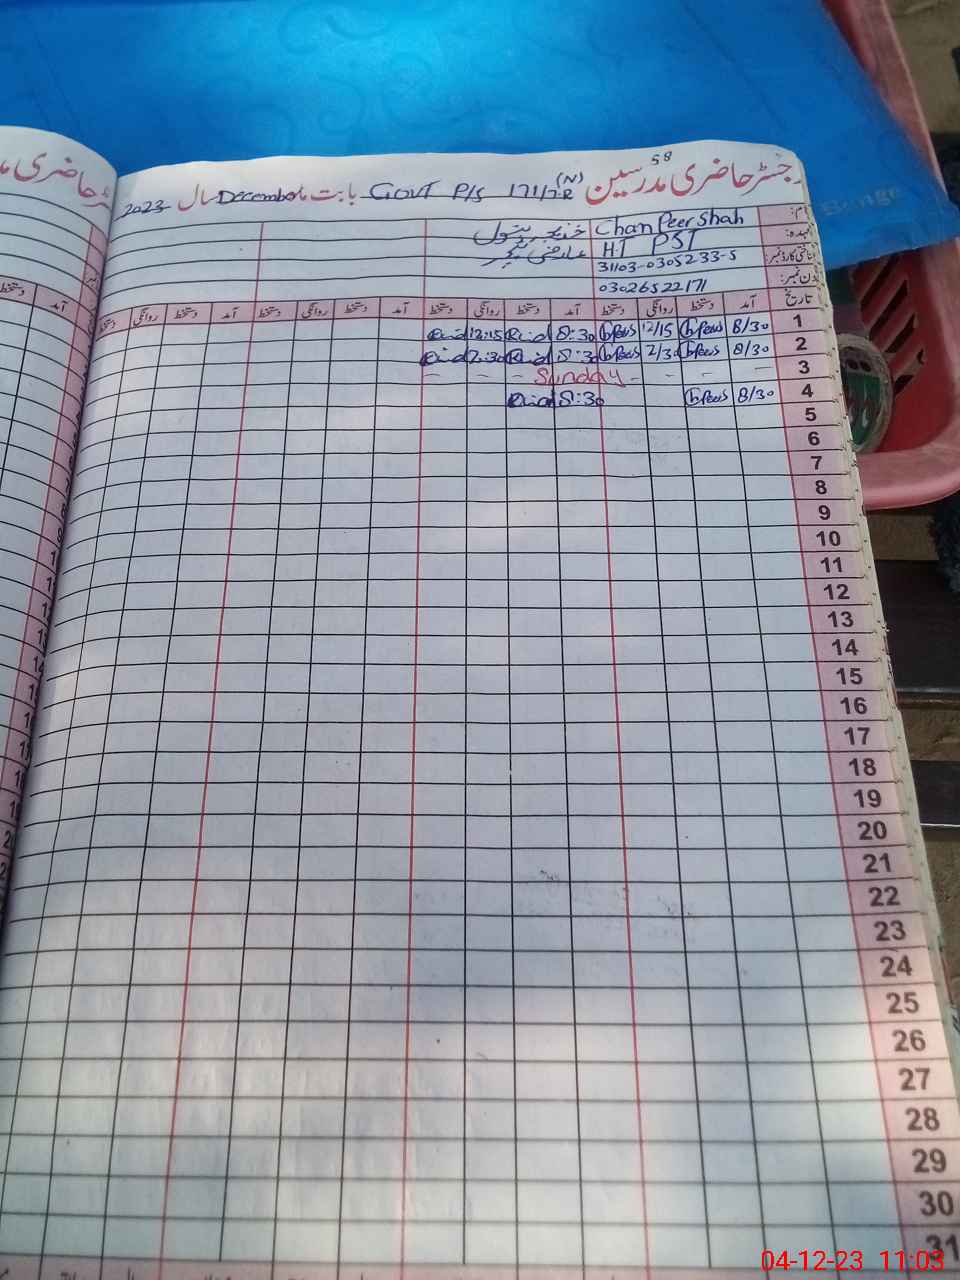 58
رجسٹر حاضری مدرسین GOVT P/S 171/7R (N) بابت ماہ December سال 2023
نام: Chan Peer Shah خدیجہ بتول
عہدہ: HT PST عارضی ٹیچر
شناختی کارڈ نمبر: 31103-0305233-5
فون نمبر: 03026522171
تاریخ آمد دستخط روانگی دستخط آمد دستخط روانگی دستخط آمد دستخط روانگی دستخط آمد دستخط روانگی دستخط
1 8/30 12/15 8:30 12:15
2 8/30 2/30 8:30 2:30
3 Sunday
4 8/30 8:30
5
6
7
8
9
10
11
12
13
14
15
16
17
18
19
20
21
22
23
24
25
26
27
28
29
30
31
04-12-23 11:03